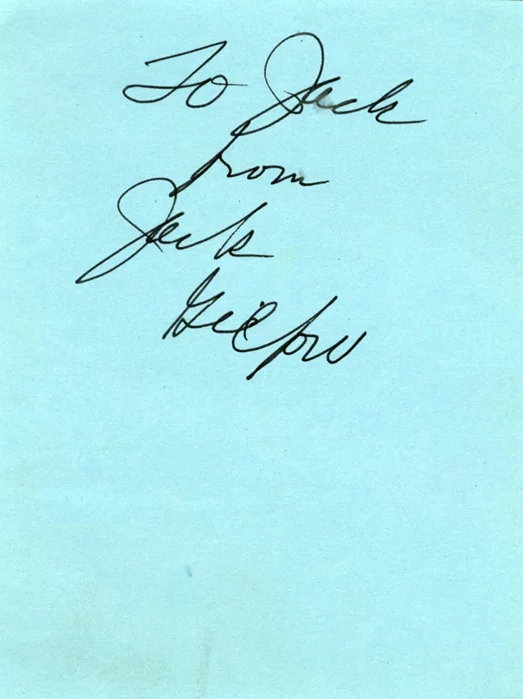 To Jack
from
Jack
Gilford